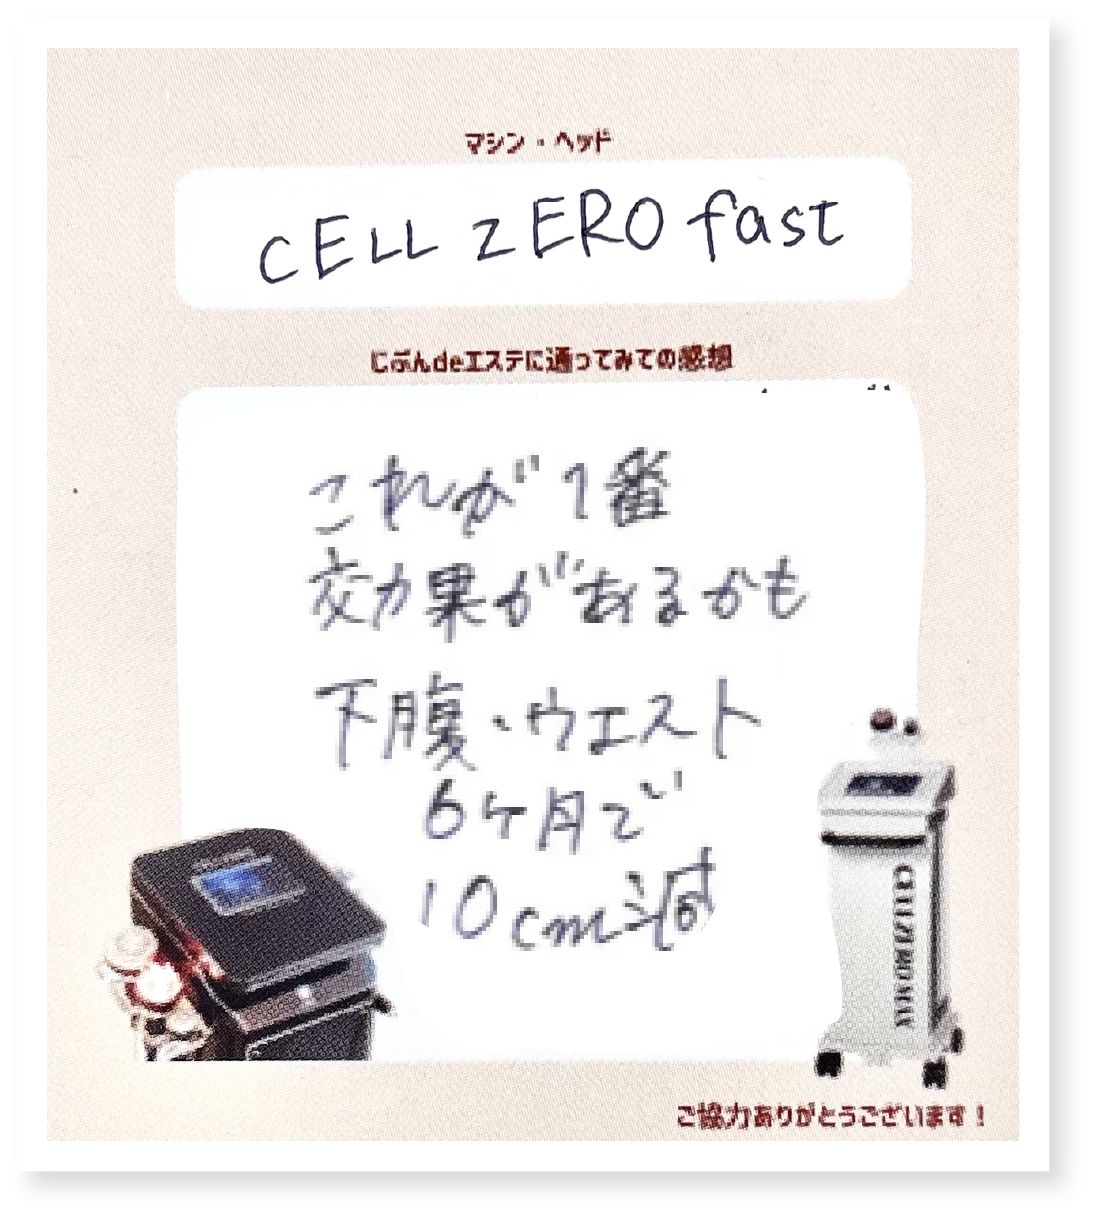 マシン・ヘッド
CELL ZERO fast
じぶんdeエステに通ってみての感想
これが1番
効果があるかも
下腹・ウエスト
6ケ月で
10cm減
CELLZEROMAX
ご協力ありがとうございます!